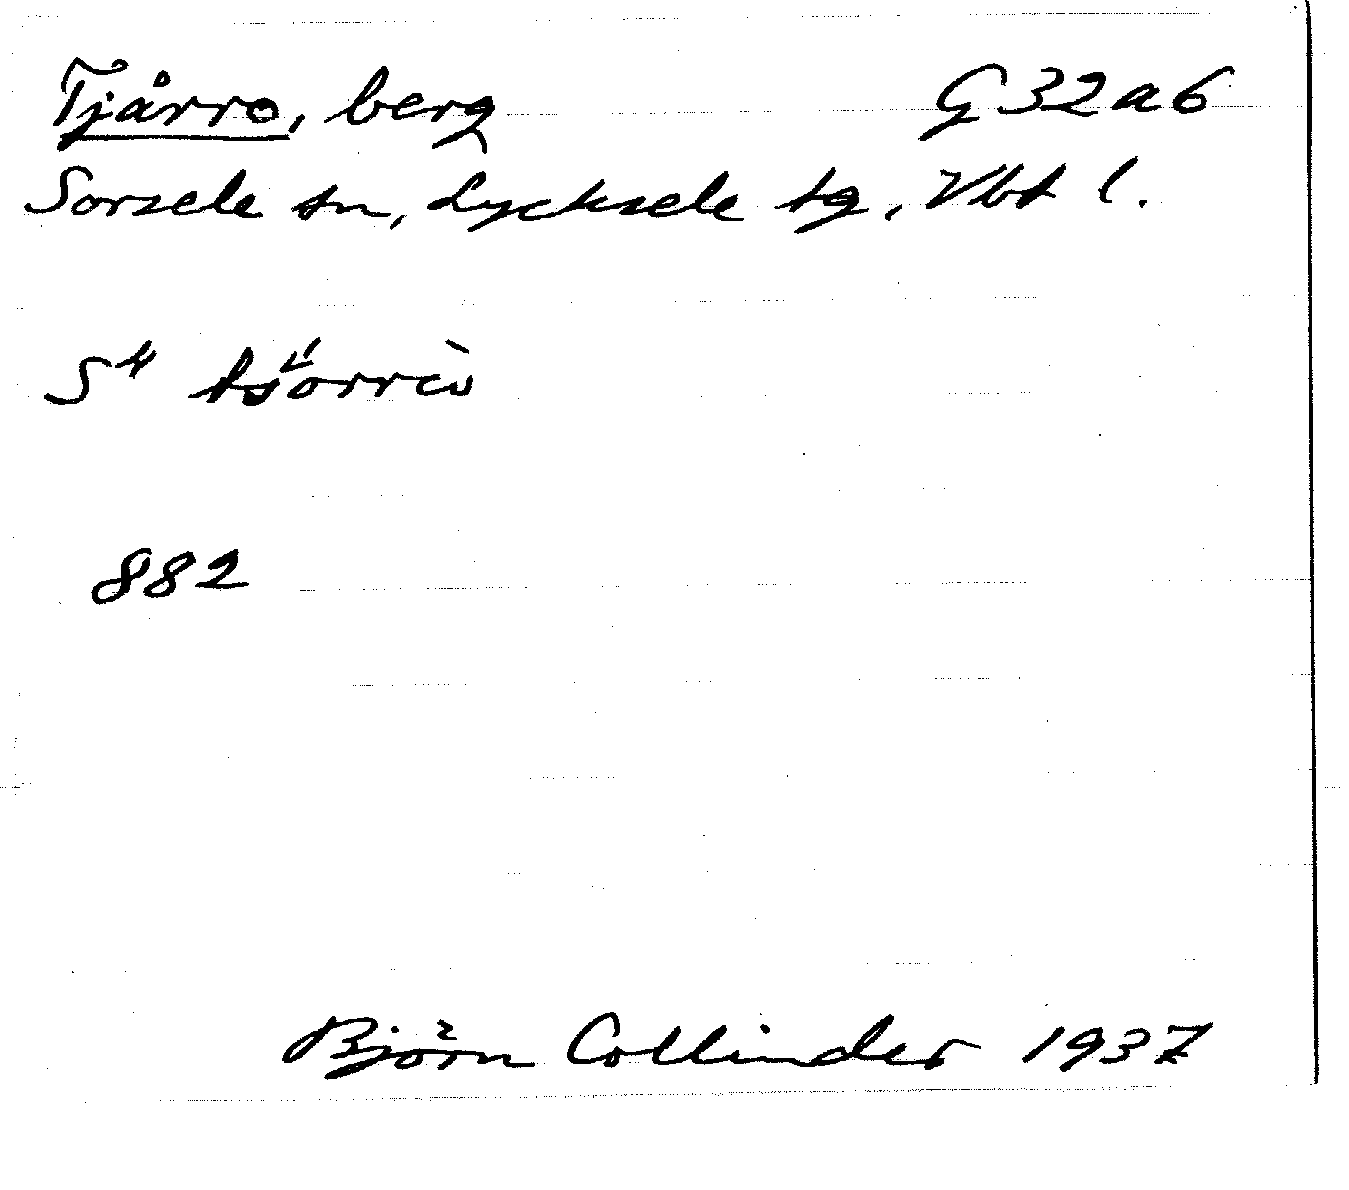 Tjårro, berg G 32 a 6
Sorsele sn, Lycksele tg, Vbt l.
S⁴
882
Björn Collinder 1937